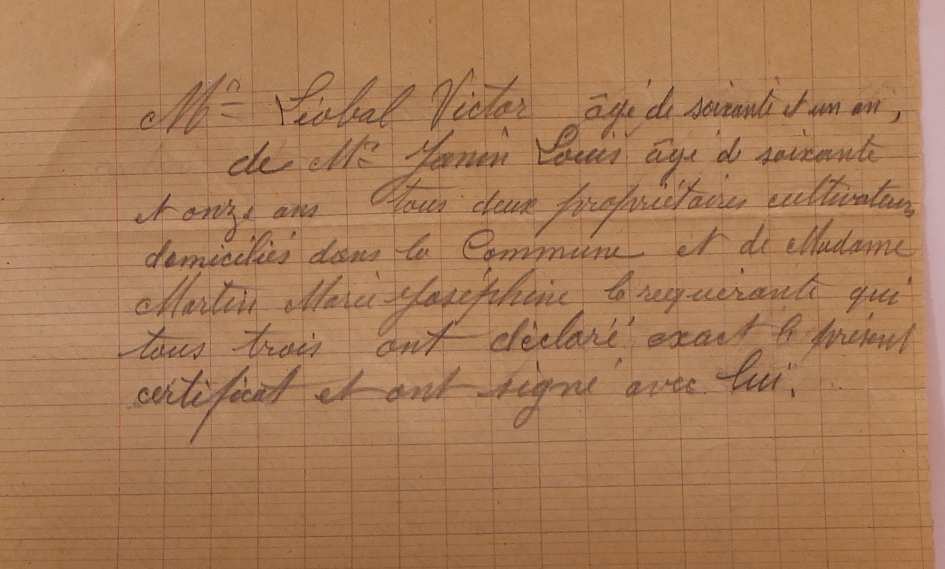 Mr Liobal Victor âgé de soixante et un an,
de Mr Janin Louis âgé de soixante
et onze ans tous deux propriétaires cultivateurs
domiciliés dans la Commune et de Madame
Martin Marie Joséphine la requérante qui
tous trois ont déclaré exact le présent
certificat et ont signé avec lui.